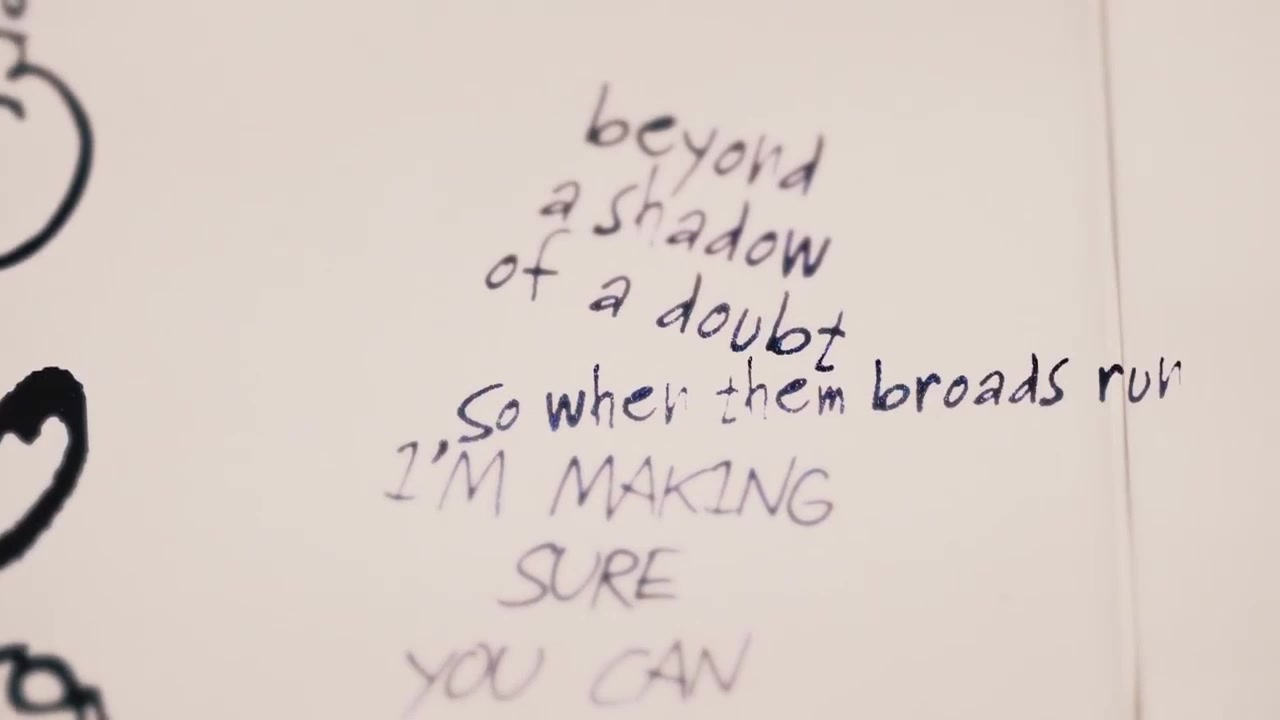 beyond
a shadow
of a doubt
so when them broads run
I'M MAKING
SURE
YOU CAN